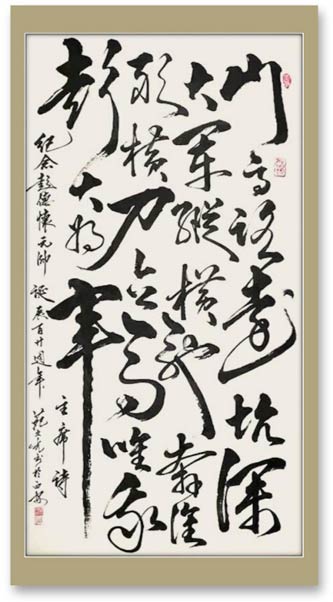 山高路遠坑深
大軍縱橫馳奔誰
敢橫刀立馬唯我
彭大將軍 主席詩
纪念彭德懷元帥誕辰百廿週年 书於西安